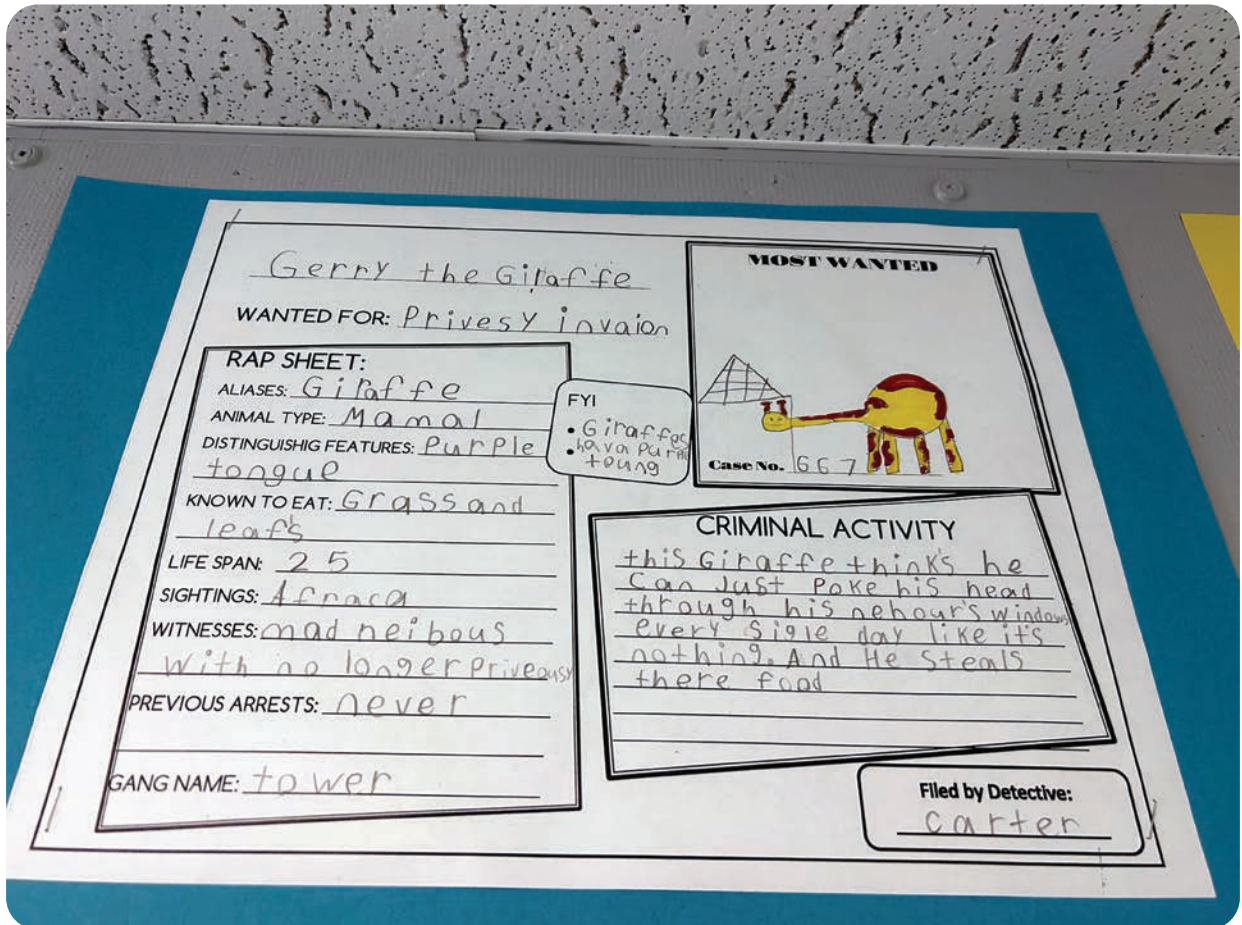 Gerry the Giraffe
WANTED FOR: Privesy invaion
RAP SHEET:
ALIASES: Giraffe
ANIMAL TYPE: Mamal
DISTINGUISHIG FEATURES: Purple
tongue
KNOWN TO EAT: Grass and
leafs
LIFE SPAN: 25
SIGHTINGS: Afraca
WITNESSES: mad neibous
with no longer priveousy
PREVIOUS ARRESTS: never
GANG NAME: tower
FYI
• Giraffes
• hava purple
toung
MOST WANTED
Case No. 667
CRIMINAL ACTIVITY
this Giraffe think's he
can Just Poke his head
through his nehour's windows
every sigle day like it's
nothing. And He steals
there food
Filed by Detective:
carter